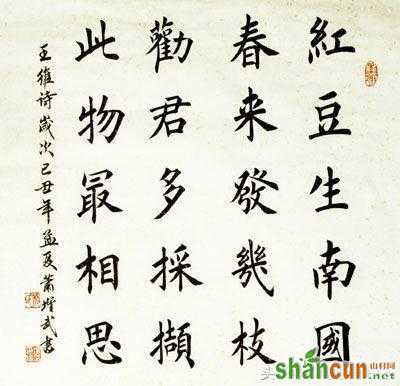 紅豆生南國
春来發幾枝
勸君多採擷
此物最相思
王維诗歲次己丑年孟夏萧增武書
shancun
山村网
.net